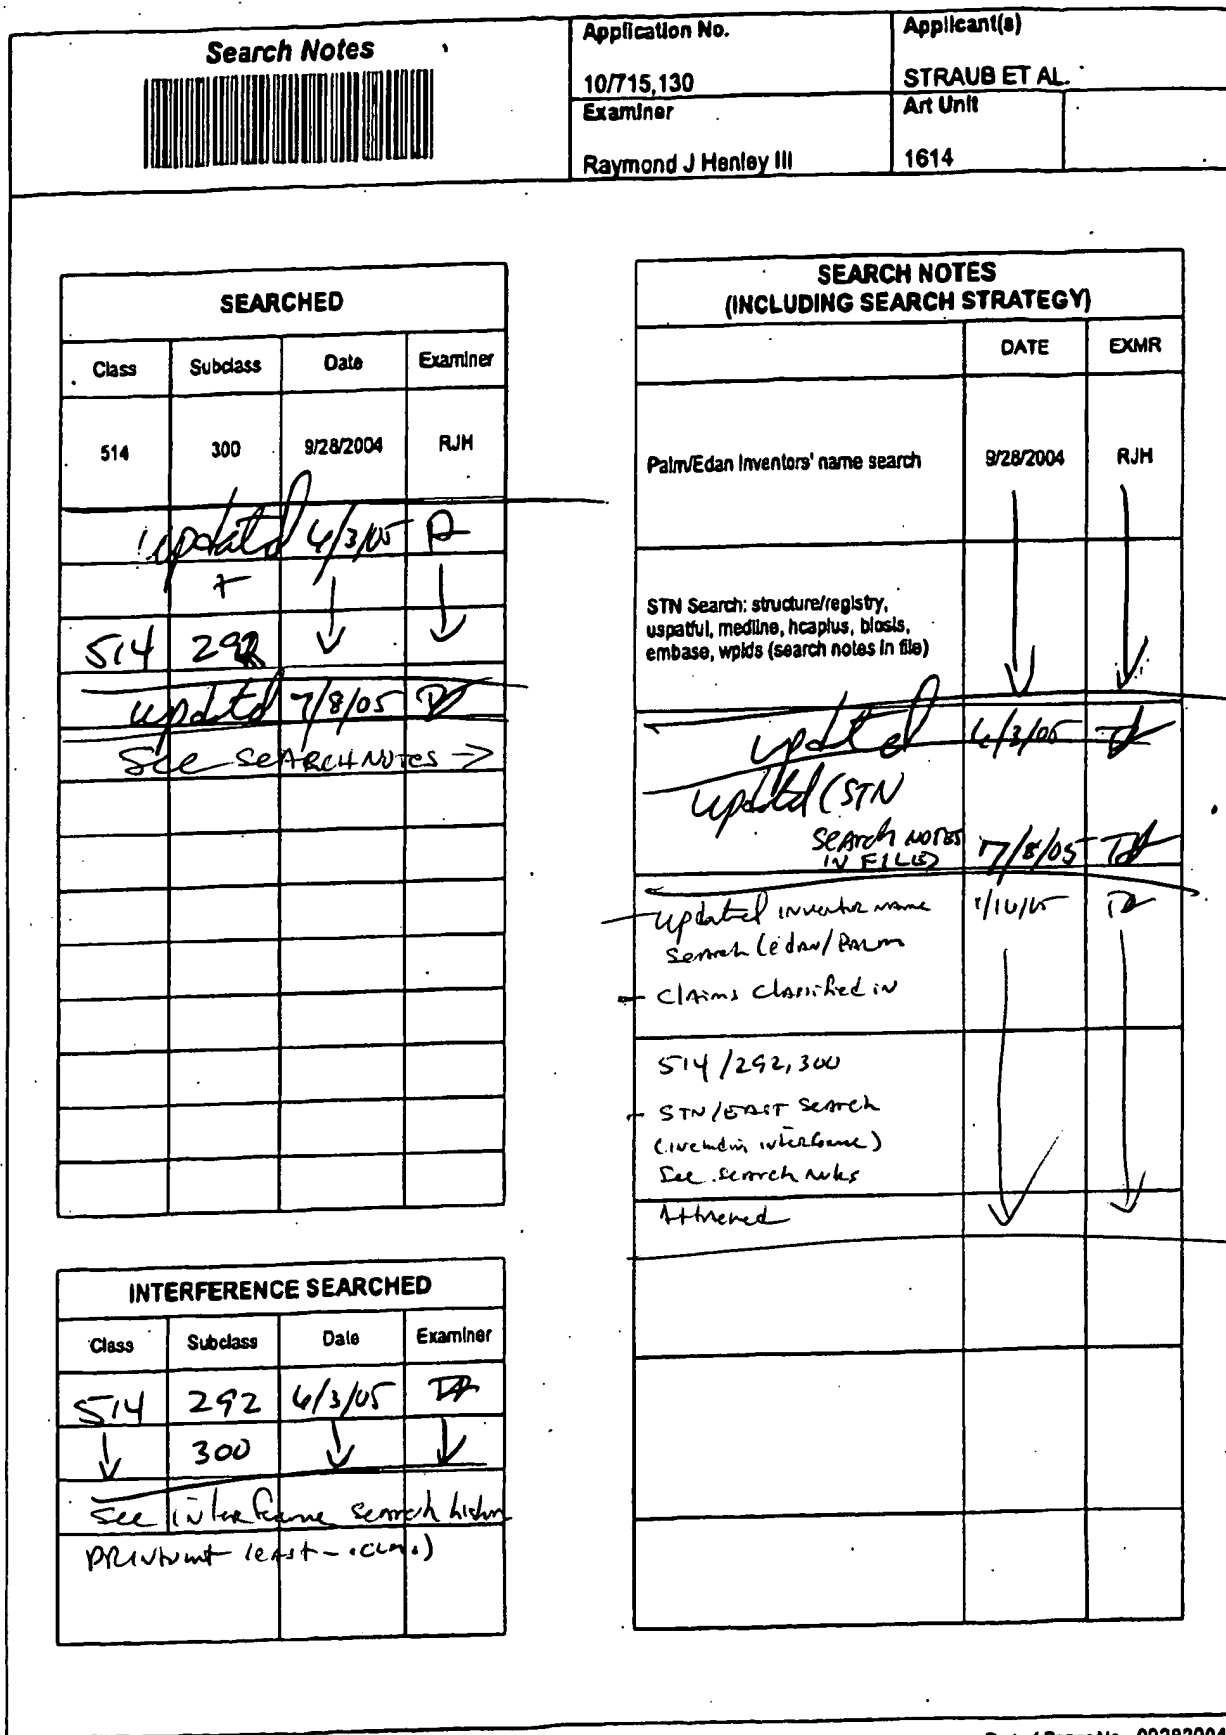 Search Notes
Application No.
10/715,130
Applicant(s)
STRAUB ET AL.
Examiner
Raymond J Henley III
Art Unit
1614
SEARCHED
Class Subclass Date Examiner
514 300 9/28/2004 RJH
updated 6/3/05
+
514 292
updated 7/8/05
See SEARCH NOTES →
INTERFERENCE SEARCHED
Class Subclass Date Examiner
514 292 6/3/05
300
See interference search
SEARCH NOTES
(INCLUDING SEARCH STRATEGY)
DATE EXMR
Palm/Edan Inventors' name search 9/28/2004 RJH
STN Search: structure/registry,
uspatful, medline, hcaplus, biosis,
embase, wpids (search notes in file)
updated 6/3/05
updated (STN
SEARCH NOTES
IN FILE) 7/8/05
- updated inventor name
Search (edan/PALM
- Claims Classified in
514/292,300
- STN/EAST Search
(including interference)
See search notes
Attached